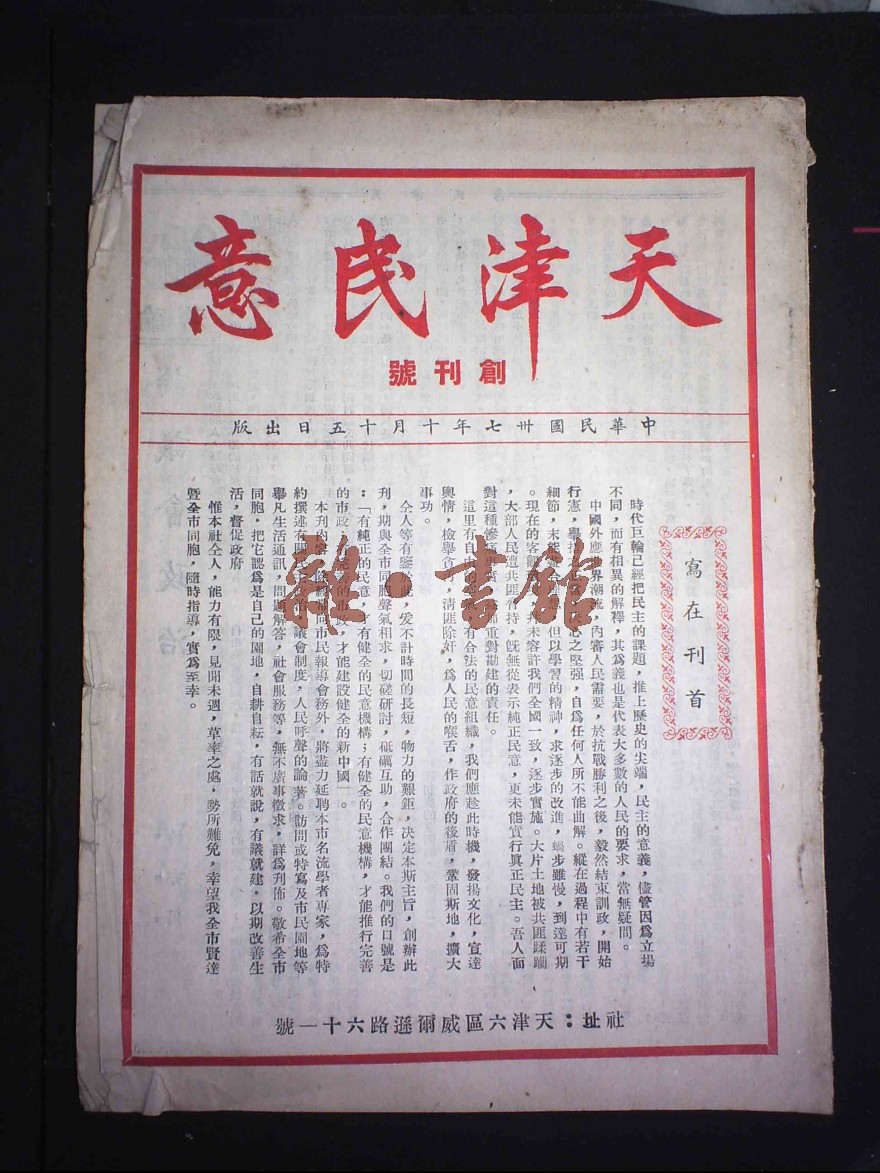 天津民意
創刊號
中華民國卅七年十月十五日出版
寫在刊首
時代巨輪己經把民主的課題，推上歷史的尖端，民主的意義，儘管因爲立場
不同，而有相異的解釋，其爲義也是代表大多數的人民的要求，當無疑問。
中國外應世界潮流，內審人民需要，於抗戰勝利之後，毅然結束訓政，開始
行憲，舉措 心之堅强，自爲任何人所不能曲解。縱在過程中有若干
細節，未能 但以學習的精神，求逐步的改進，蝸步雖慢，到達可期
。現在的客觀 未容許我們全國一致，逐步實施。大片土地被共匪蹂躪
，大部人民遭共匪脅持，旣無從表示純正民意，更未能實行眞正民主。吾人面
對這種慘 重對勘建的責任。
這里有自 有合法的民意組織，我們應趁此時機，發揚文化，宣達
輿情，檢舉貪 淸匪除奸，爲人民的喉舌，作政府的後盾，鞏固斯地，擴大
事功。
仝人等有鑒於此，爰不計時間的長短，物力的艱鉅，决定本斯主旨，創辦此
刊，期與全市同胞聲氣相求，切磋研討，砥礪互助，合作團結。我們的口號是
：「有純正的民意，才有健全的民意機構；有健全的民意機構，才能推行完善
的市政，有完善的市政，才能建設健全的新中國」。
本刊內容，除經常向市民報導會務外，將盡力延聘本市名流學者專家，爲特
約撰述有關民主政治，議會制度，人民呼聲的論著。訪問或特寫及市民園地等
舉凡生活通訊，問題解答，社會服務等，無不廣事徵求，詳爲刊佈。敬希全市
同胞，把它認爲是自己的園地，自耕自耘，有話就說，有議就建，以期改善生
活，督促政府
惟本社仝人，能力有限，見聞未週，草率之處，勢所難免，幸望我全市賢達
暨全市同胞，隨時指導，實爲至幸。
社址：天津六區威爾遜路六十一號
雜·書館